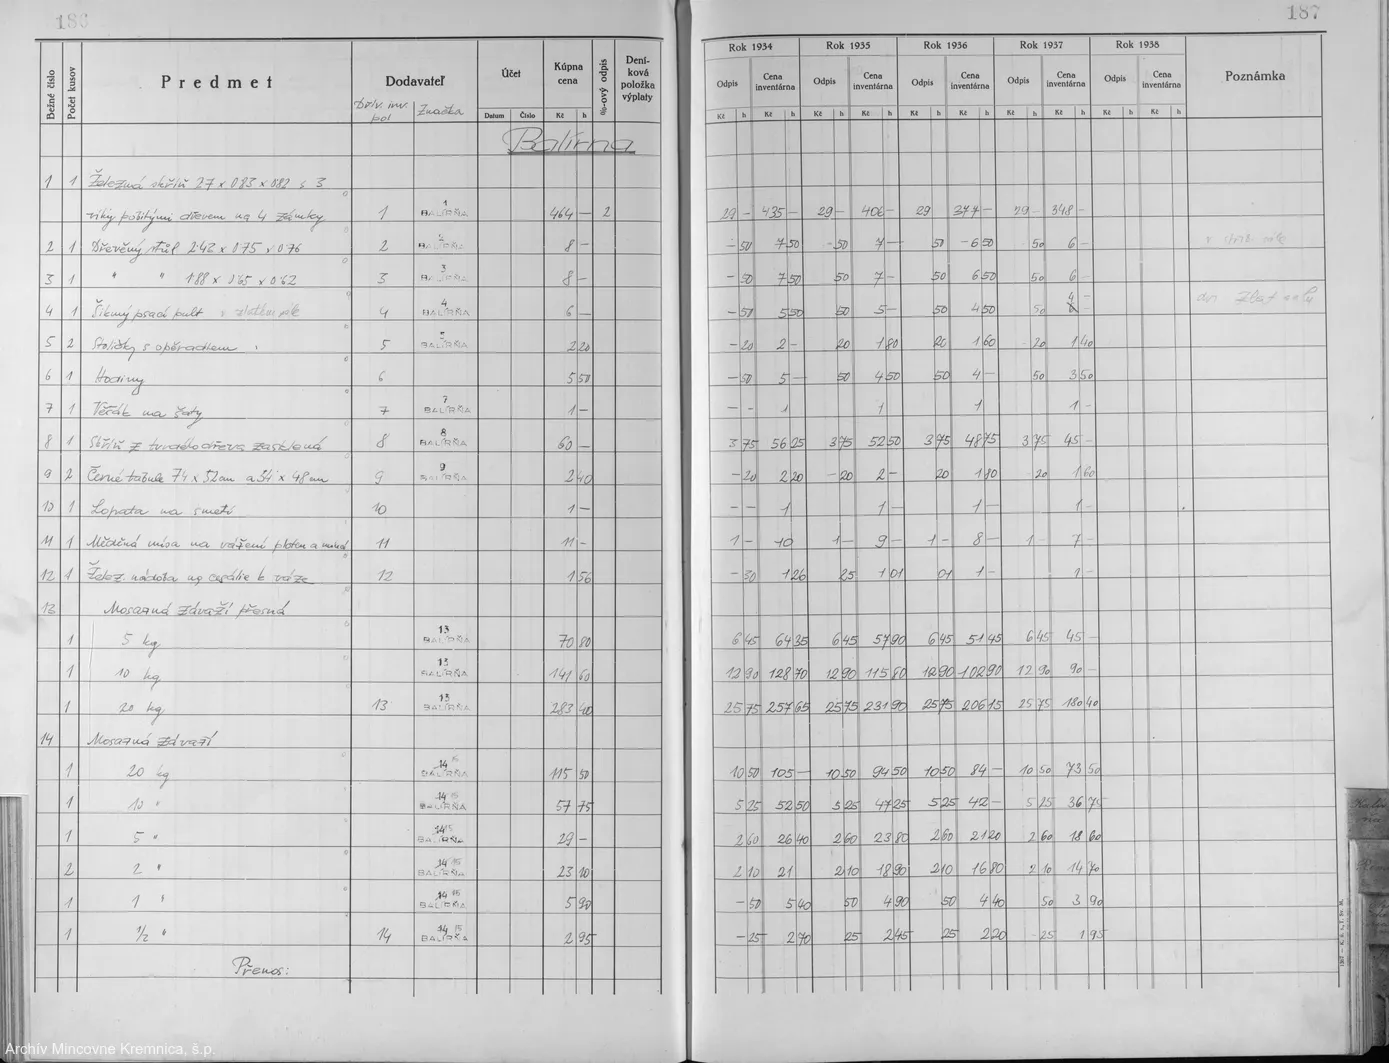 186
187
Bežné číslo Počet kusov Predmet Dodavateľ Účet Kúpna cena %-ový odpis Deníková položka výplaty
Značka Datum Číslo Kč h
Rok 1934 Rok 1935 Rok 1936 Rok 1937 Rok 1938 Poznámka
Odpis Cena inventárna Odpis Cena inventárna Odpis Cena inventárna Odpis Cena inventárna Odpis Cena inventárna
Kč h Kč h Kč h Kč h Kč h Kč h Kč h Kč h Kč h Kč h
Balírna
1 1 Železná skříň 27 x 083 x 082 s 3
víky pobitými dřevem na 4 zámky 1 1 BALÍRŇA 464 — 2 29 — 435 — 29 — 406 — 29 377 — 29 — 348 —
2 1 Dřevěný stůl 2·42 x 0·75 x 0·76 2 2 BALÍRŇA 8 — — 50 7 50 — 50 7 — 50 — 6 50 50 6 —
3 1 " " 1·88 x 0·65 x 0·62 3 3 BALÍRŇA 8 — — 50 7 50 50 7 — 50 6 50 50 6 —
4 1 Šikmý psací pult 4 4 BALÍRŇA 6 — — 50 5 50 50 5 — 50 4 50 50 4 —
5 2 Stoličky s opěradlem 5 5 BALÍRŇA 2 20 — 20 2 — 20 1 80 20 1 60 — 20 1 40
6 1 Hodiny 6 5 50 — 50 5 — 50 4 50 50 4 — 50 3 50
7 1 Věšák na šaty 7 7 BALÍRŇA 1 — — — 1 1 1 1 —
8 1 Skříň z tvrdého dřeva zasklená 8 8 BALÍRŇA 60 — 3 75 56 25 3 75 52 50 3 75 48 75 3 75 45 —
9 2 Černé tabule 74 x 52 cm a 34 x 48 cm 9 9 BALÍRŇA 2 40 — 20 2 20 — 20 2 — 20 1 80 — 20 1 60
10 1 Lopata na smetí 10 1 — — — 1 1 — 1 — 1 —
11 1 Měděná mísa na vážení platen a mincí 11 11 — 1 — 10 1 — 9 — 1 — 8 — 1 — 7 —
12 1 Želez. nádoba na cesálie k váze 12 1 56 — 30 1 26 25 1 01 01 1 — 1 —
13 Mosazná závaží přesná
1 5 kg 13 BALÍRŇA 70 80 6 45 64 35 6 45 57 90 6 45 51 45 6 45 45 —
1 10 kg 13 BALÍRŇA 141 60 12 90 128 70 12 90 115 80 12 90 102 90 12 90 90 —
1 20 kg 13 13 BALÍRŇA 283 40 25 75 257 65 25 75 231 90 25 75 206 15 25 75 180 40
14 Mosazná závaží
1 20 kg 14 BALÍRŇA 115 50 10 50 105 — 10 50 94 50 10 50 84 — 10 50 73 50
1 10 " 14 BALÍRŇA 57 75 5 25 52 50 5 25 47 25 5 25 42 — 5 25 36 75
1 5 " 14 BALÍRŇA 29 — 2 60 26 40 2 60 23 80 2 60 21 20 2 60 18 60
2 2 " 14 BALÍRŇA 23 10 2 10 21 2 10 18 90 2 10 16 80 2 10 14 70
1 1 " 14 BALÍRŇA 5 90 — 50 5 40 50 4 90 50 4 40 50 3 90
1 1/2 " 14 14 BALÍRŇA 2 95 — 25 2 70 25 2 45 25 2 20 — 25 1 95
Přenos:
Archív Mincovne Kremnica, š.p.